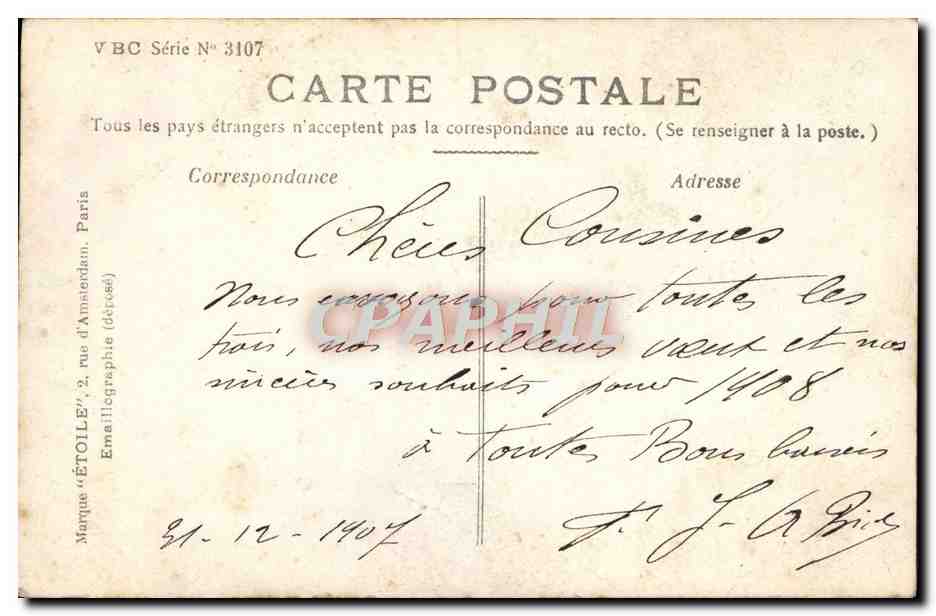 VBC Série Nº 3107
CARTE POSTALE
Tous les pays étrangers n'acceptent pas la correspondance au recto. (Se renseigner à la poste.)
Correspondance
Adresse
Marque "ÉTOILE", 2, rue d'Amsterdam. Paris
Emaillographie (déposé)
Chères Cousines
Nous envoyons pour toutes les
trois, nos meilleurs vœux et nos
sincères souhaits pour 1908
à Toutes Bons baisers
31-12-1907
CPAPHIL